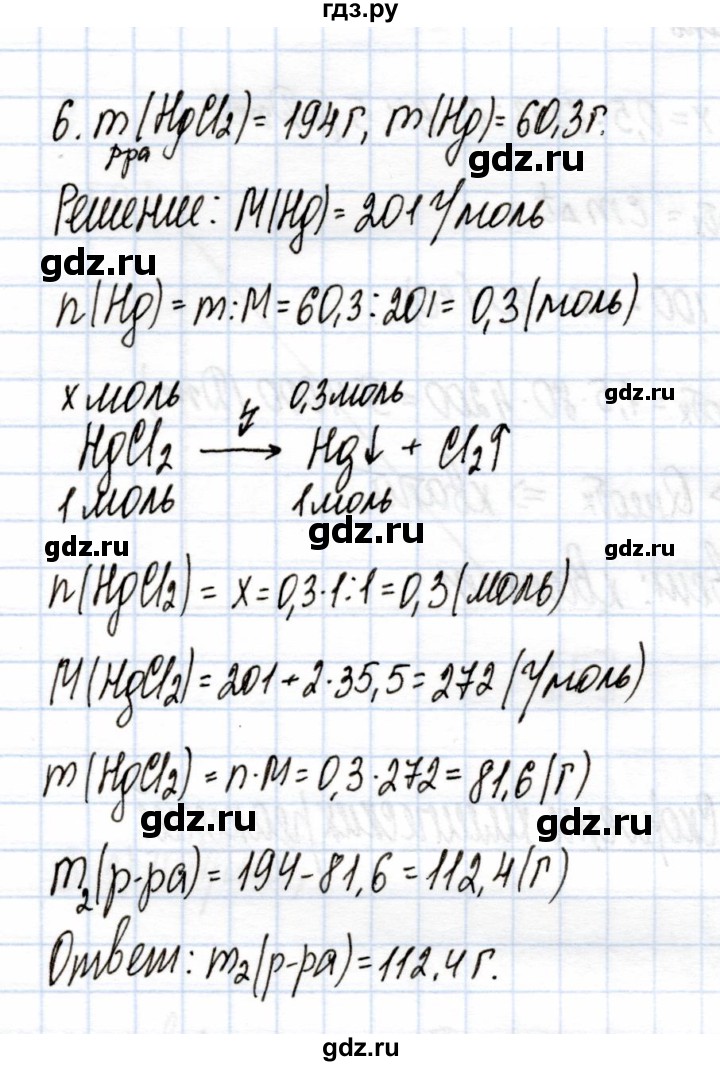 гдз.ру
6. m(HgCl₂) = 194г, m(Hg) = 60,3г.
р-ра
gdz.ru
Решение: M(Hg) = 201 г/моль
gdz.ru
n(Hg) = m:M = 60,3:201 = 0,3(моль)
х моль 0,3моль
gdz.ru
HgCl₂ ⟶ Hg↓ + Cl₂↑
1 моль 1моль
gdz.ru
gdz.ru gdz.ru
n(HgCl₂) = x = 0,3·1:1 = 0,3(моль)
M(HgCl₂) = 201 + 2·35,5 = 272 (г/моль)
m(HgCl₂) = n·M = 0,3·272 = 81,6(г)
gdz.ru gdz.ru
m₂(р-ра) = 194 - 81,6 = 112,4(г)
Ответ: m₂(р-ра) = 112,4г.
gdz.ru